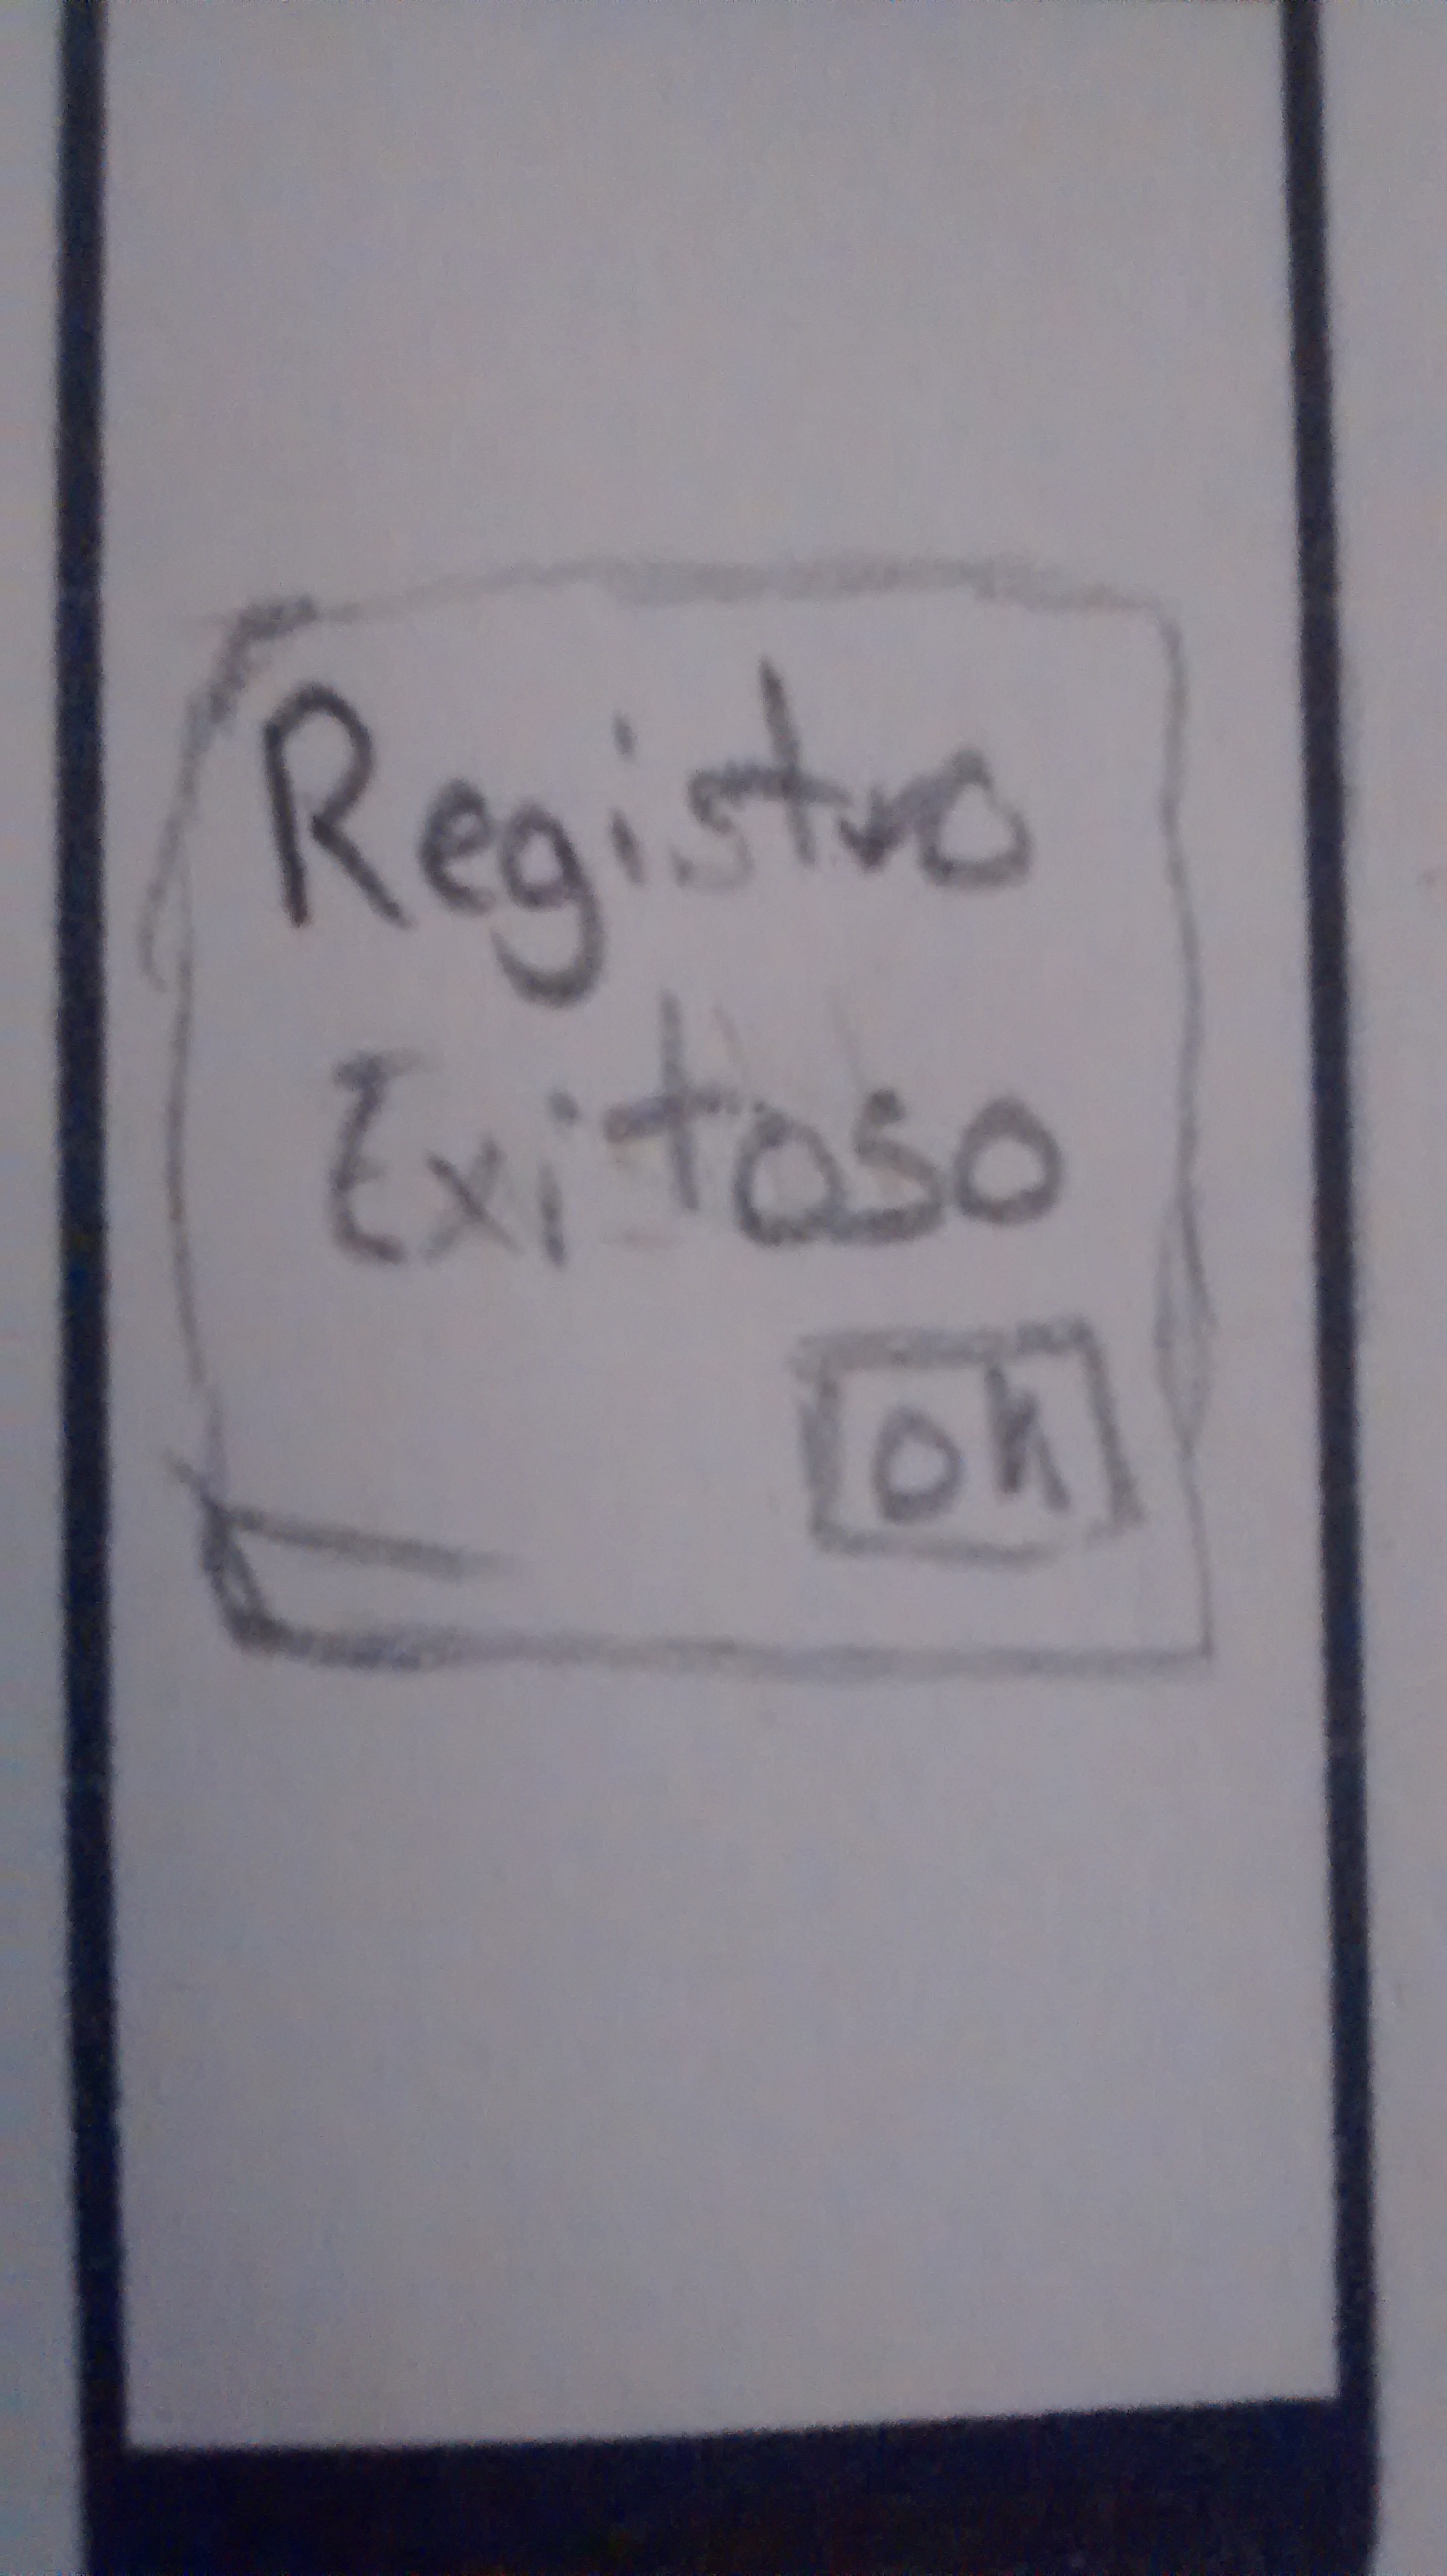 Registro
Exitoso
ok